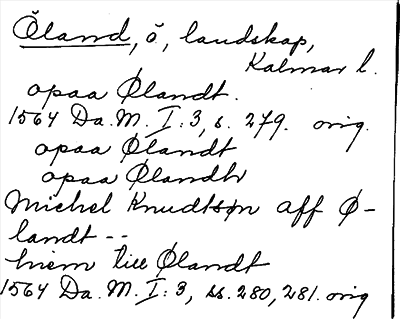 Öland, ö, landskap,
Kalmar l.
opaa Ølandt.
1564 Da. M. I: 3, s. 279. orig.
opaa Ølandt
opaa Ølandtt
Michel Knudtsøn aff Ø-
landt --
hiem till Ølandt
1564 Da. M. I: 3, ss. 280, 281. orig